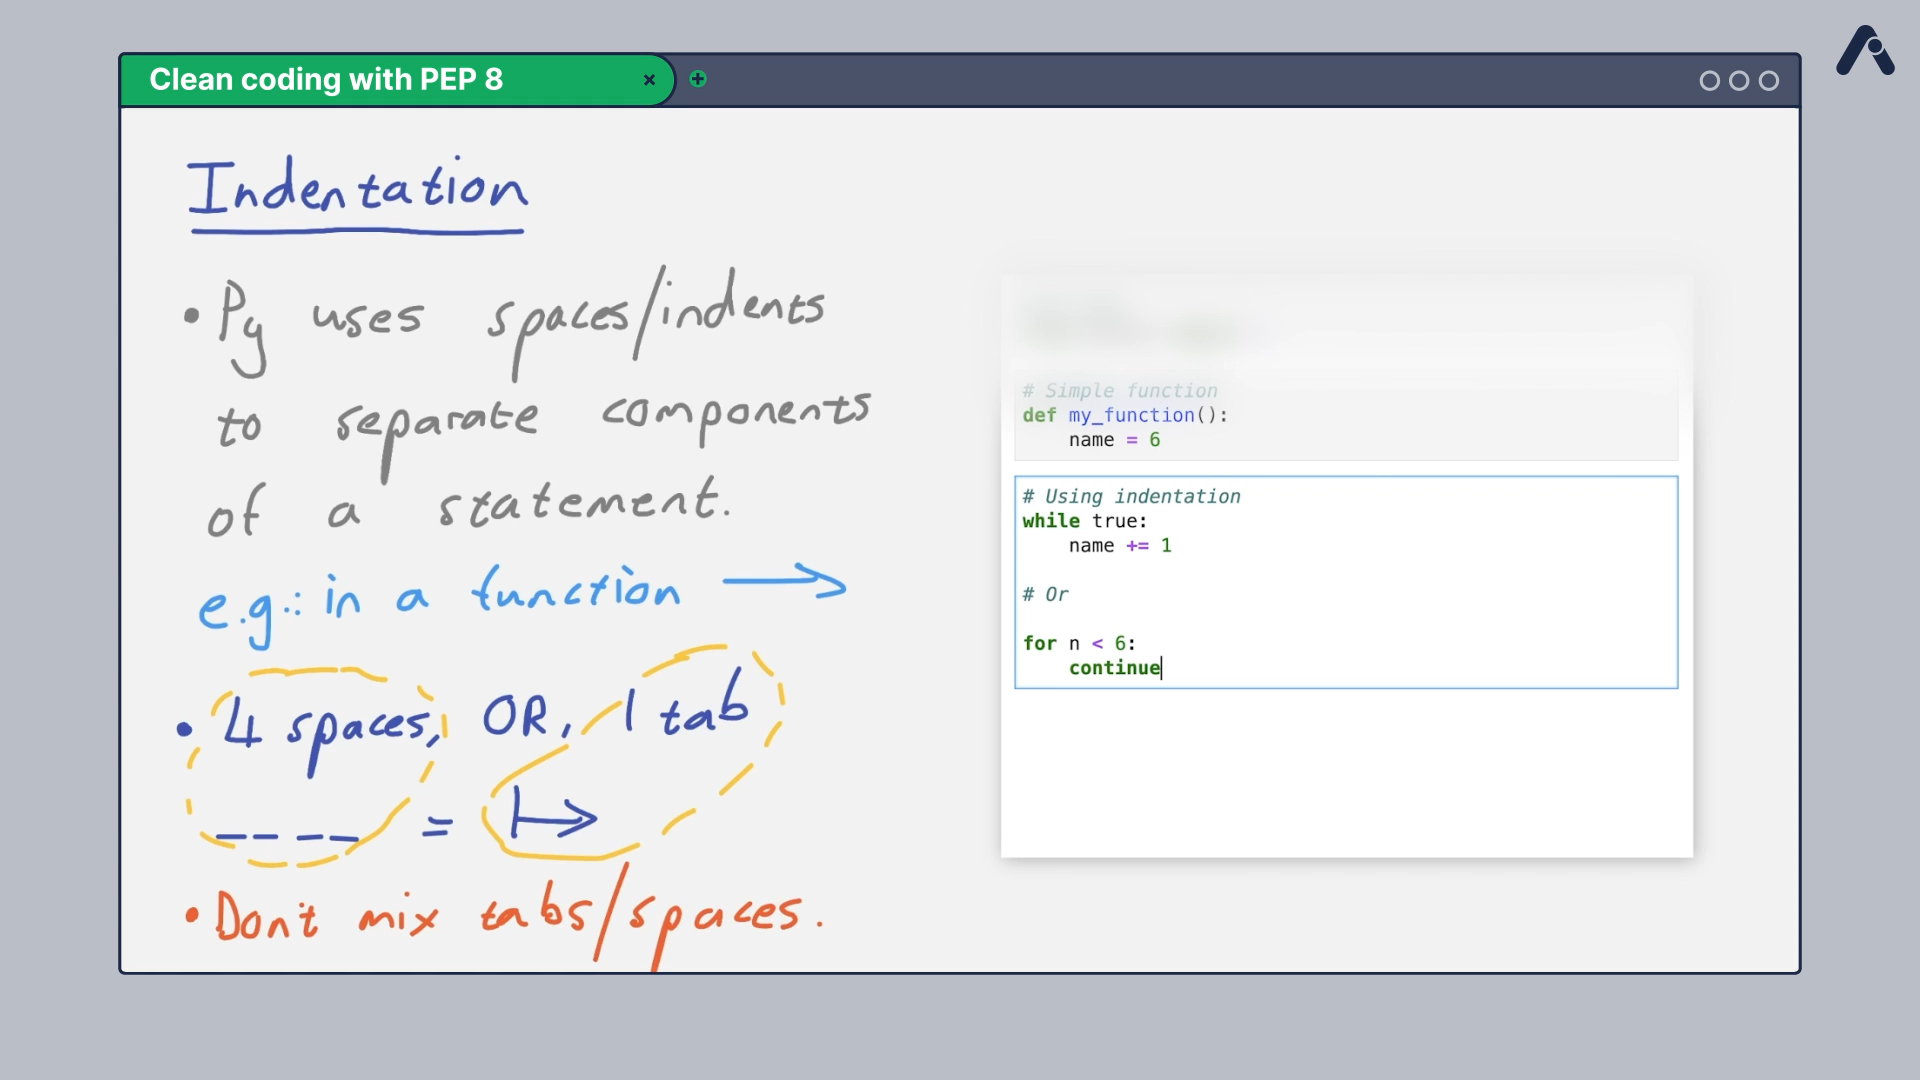 Clean coding with PEP 8
Indentation
• Py uses spaces/indents
to separate components
of a statement.
e.g.: in a function →
• 4 spaces, OR, 1 tab
_ _ _ _ = ↦
• Don't mix tabs/spaces.
# Simple function
def my_function():
    name = 6
# Using indentation
while true:
    name += 1
# Or
for n < 6:
    continue